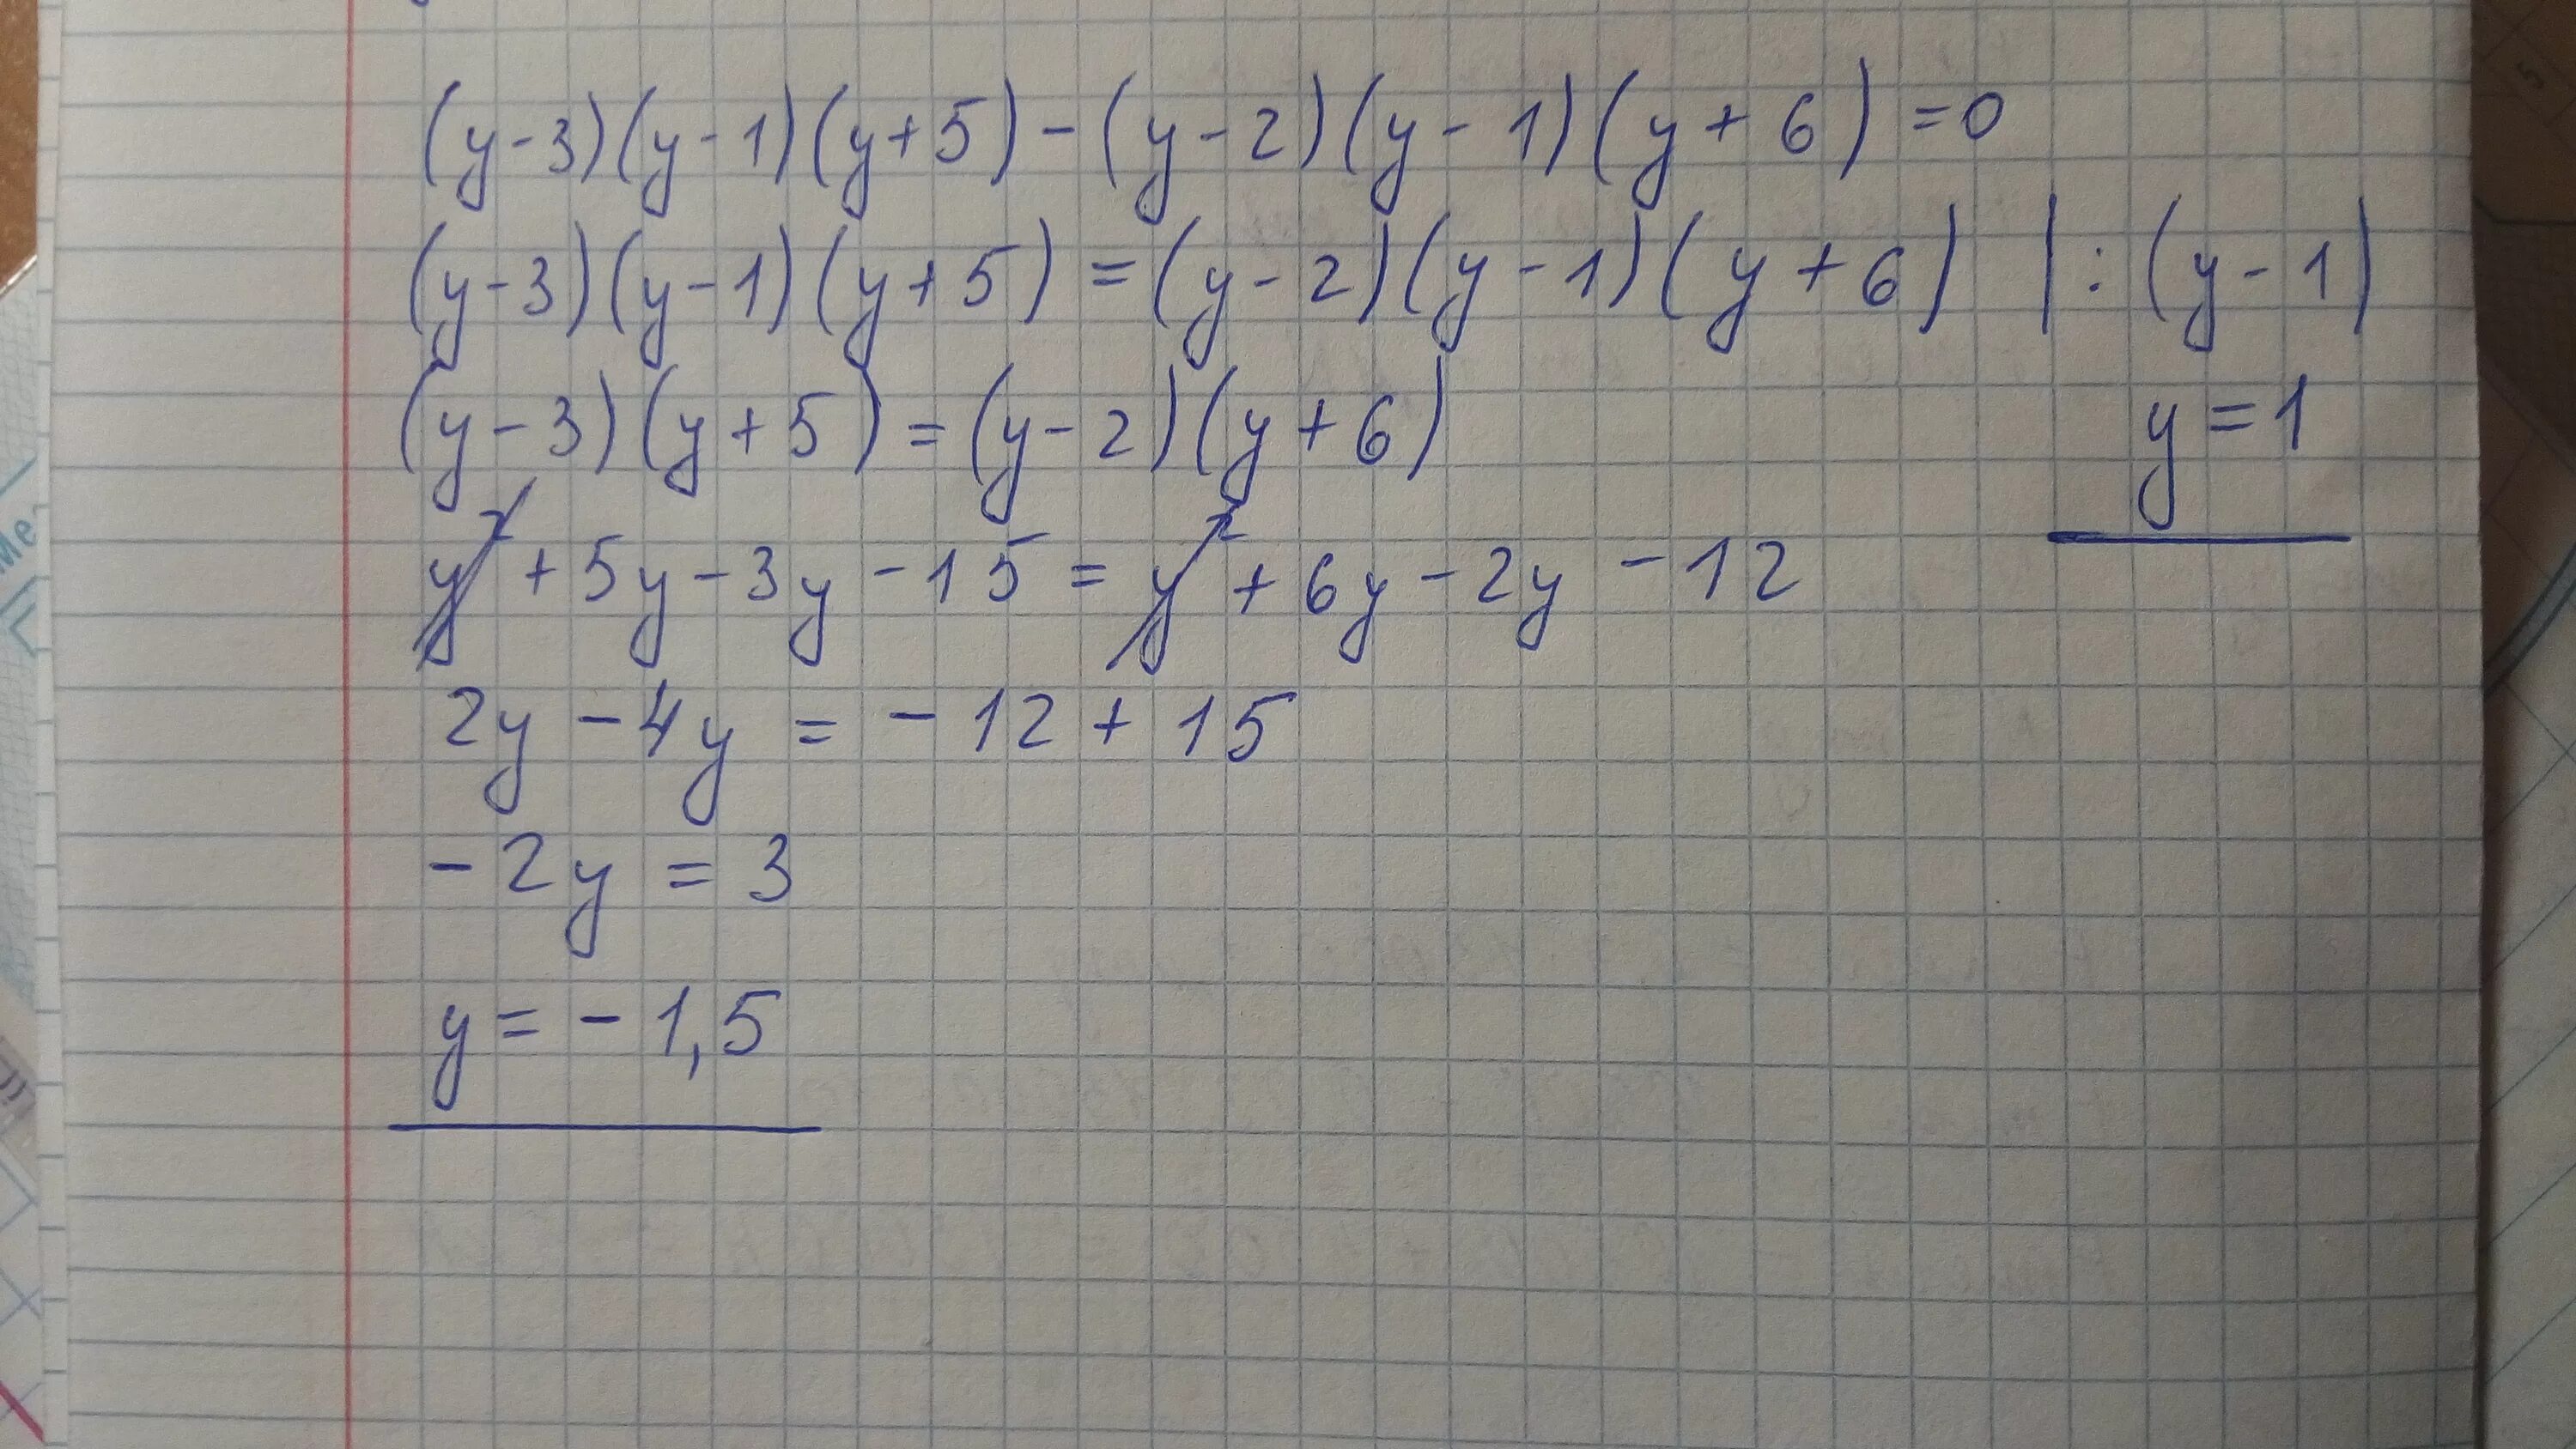 (y-3)(y-1)(y+5)-(y-2)(y-1)(y+6)=0
(y-3)(y-1)(y+5)=(y-2)(y-1)(y+6) | : (y-1)
(y-3)(y+5)=(y-2)(y+6)
y=1
y²+5y-3y-15=y²+6y-2y-12
2y-4y=-12+15
-2y=3
y=-1,5